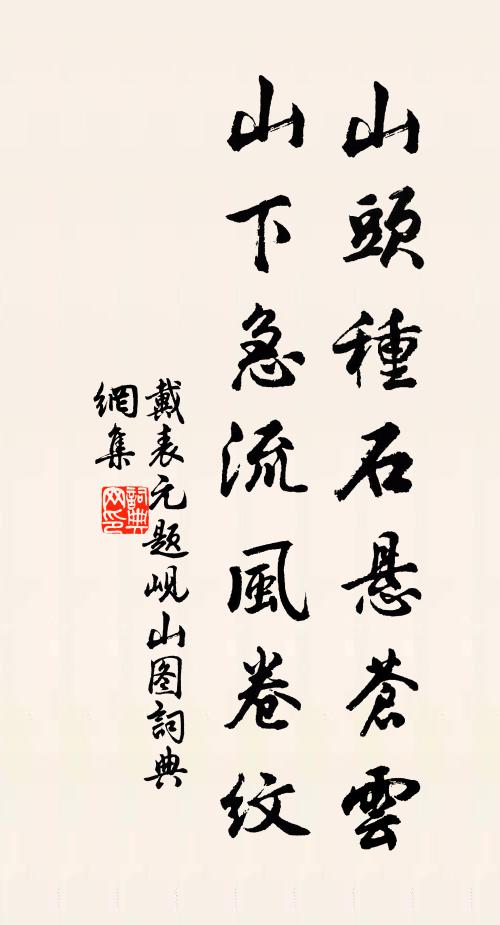 山頭種石悬蒼雲
山下急流風卷紋
戴表元題峴山图詞典
網集
詞典网印